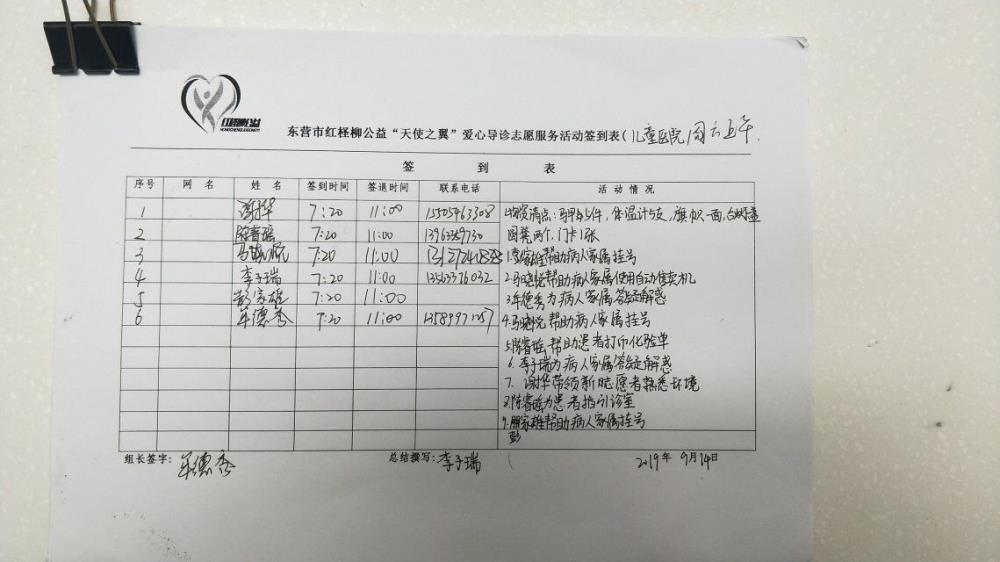 红柽柳公益
东营市红柽柳公益“天使之翼”爱心导诊志愿服务活动签到表(儿童医院)周六上午.
签 到 表
序号 网 名 姓 名 签到时间 签退时间 联系电话 活 动 情 况
1 谢华 7:20 11:00 15505463308 物资清点:马甲 件,体温计5支,旗帜一面,
2 陈睿瑶 7:20 11:00 圆凳两个,门卡1张
3 7:20 11:00 1. 家雄帮助病人家属挂号
4 李子瑞 7:20 11:00 13563376032 2.马晓悦帮助病人家属使用自动售卖机
5 彭家雄 7:20 11:00 3.牟德秀为病人家属答疑解惑
6 牟德秀 7:20 11:00 4.马晓悦帮助病人家属挂号
5.陈睿瑶帮助患者打印化验单
6.李子瑞为病人家属答疑解惑
7.谢华带领新志愿者熟悉环境
8.陈睿瑶为患者指引诊室
9. 家雄帮助病人家属挂号
彭
组长签字: 牟德秀 总结撰写: 李子瑞 2019年 9月14日